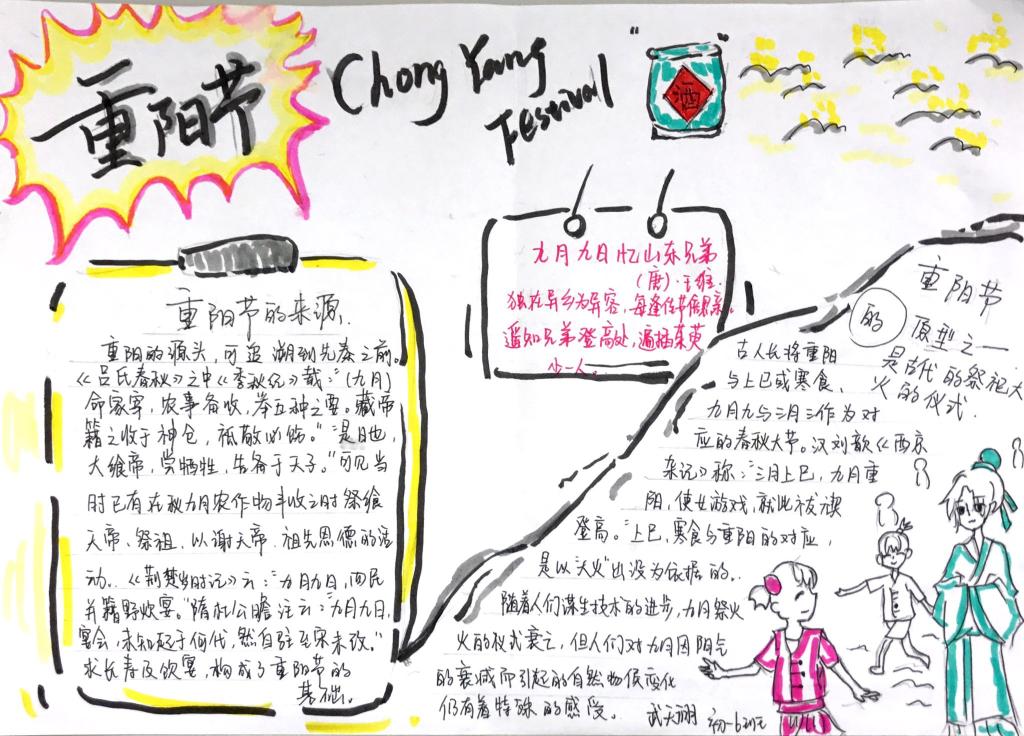 重阳节
Chong Yang
Festival
酒
重阳节的来源.
重阳的源头，可追溯到先秦之前。
《吕氏春秋》之中《季秋纪》载：“(九月)
命家宰，农事备收，举五种之要。藏帝
籍之收于神仓，祗敬必饬。”“是日也，
大飨帝，尝牺牲，告备于天子。”可见当
时已有在秋九月农作物丰收之时祭飨
天帝、祭祖，以谢天帝、祖先恩德的活
动. 《荆楚岁时记》云：“九月九日，四民
并籍野饮宴。”隋杜公瞻注云：“九月九日，
宴会，未知起于何代，然自驻至宋未改。”
求长寿及饮宴，构成了重阳节的
基础。
九月九日忆山东兄弟
(唐)·王维.
独在异乡为异客，每逢佳节倍思亲。
遥知兄弟登高处，遍插茱萸
少一人。
重阳节
的 原型之一
是古代的祭祀大
火的仪式.
古人长将重阳
与上巳或寒食、
九月九与三月三作为对
应的春秋大节。汉刘歆《西京
杂记》称：“三月上巳，九月重
阳，使女游戏，就此祓禊
登高。”上巳，寒食与重阳的对应，
是以“大火”出没为依据的.
随着人们谋生技术的进步，九月祭火
火的仪式衰亡，但人们对九月因阳气
的衰减而引起的自然物候变化
仍有着特殊的感受。
初一6班